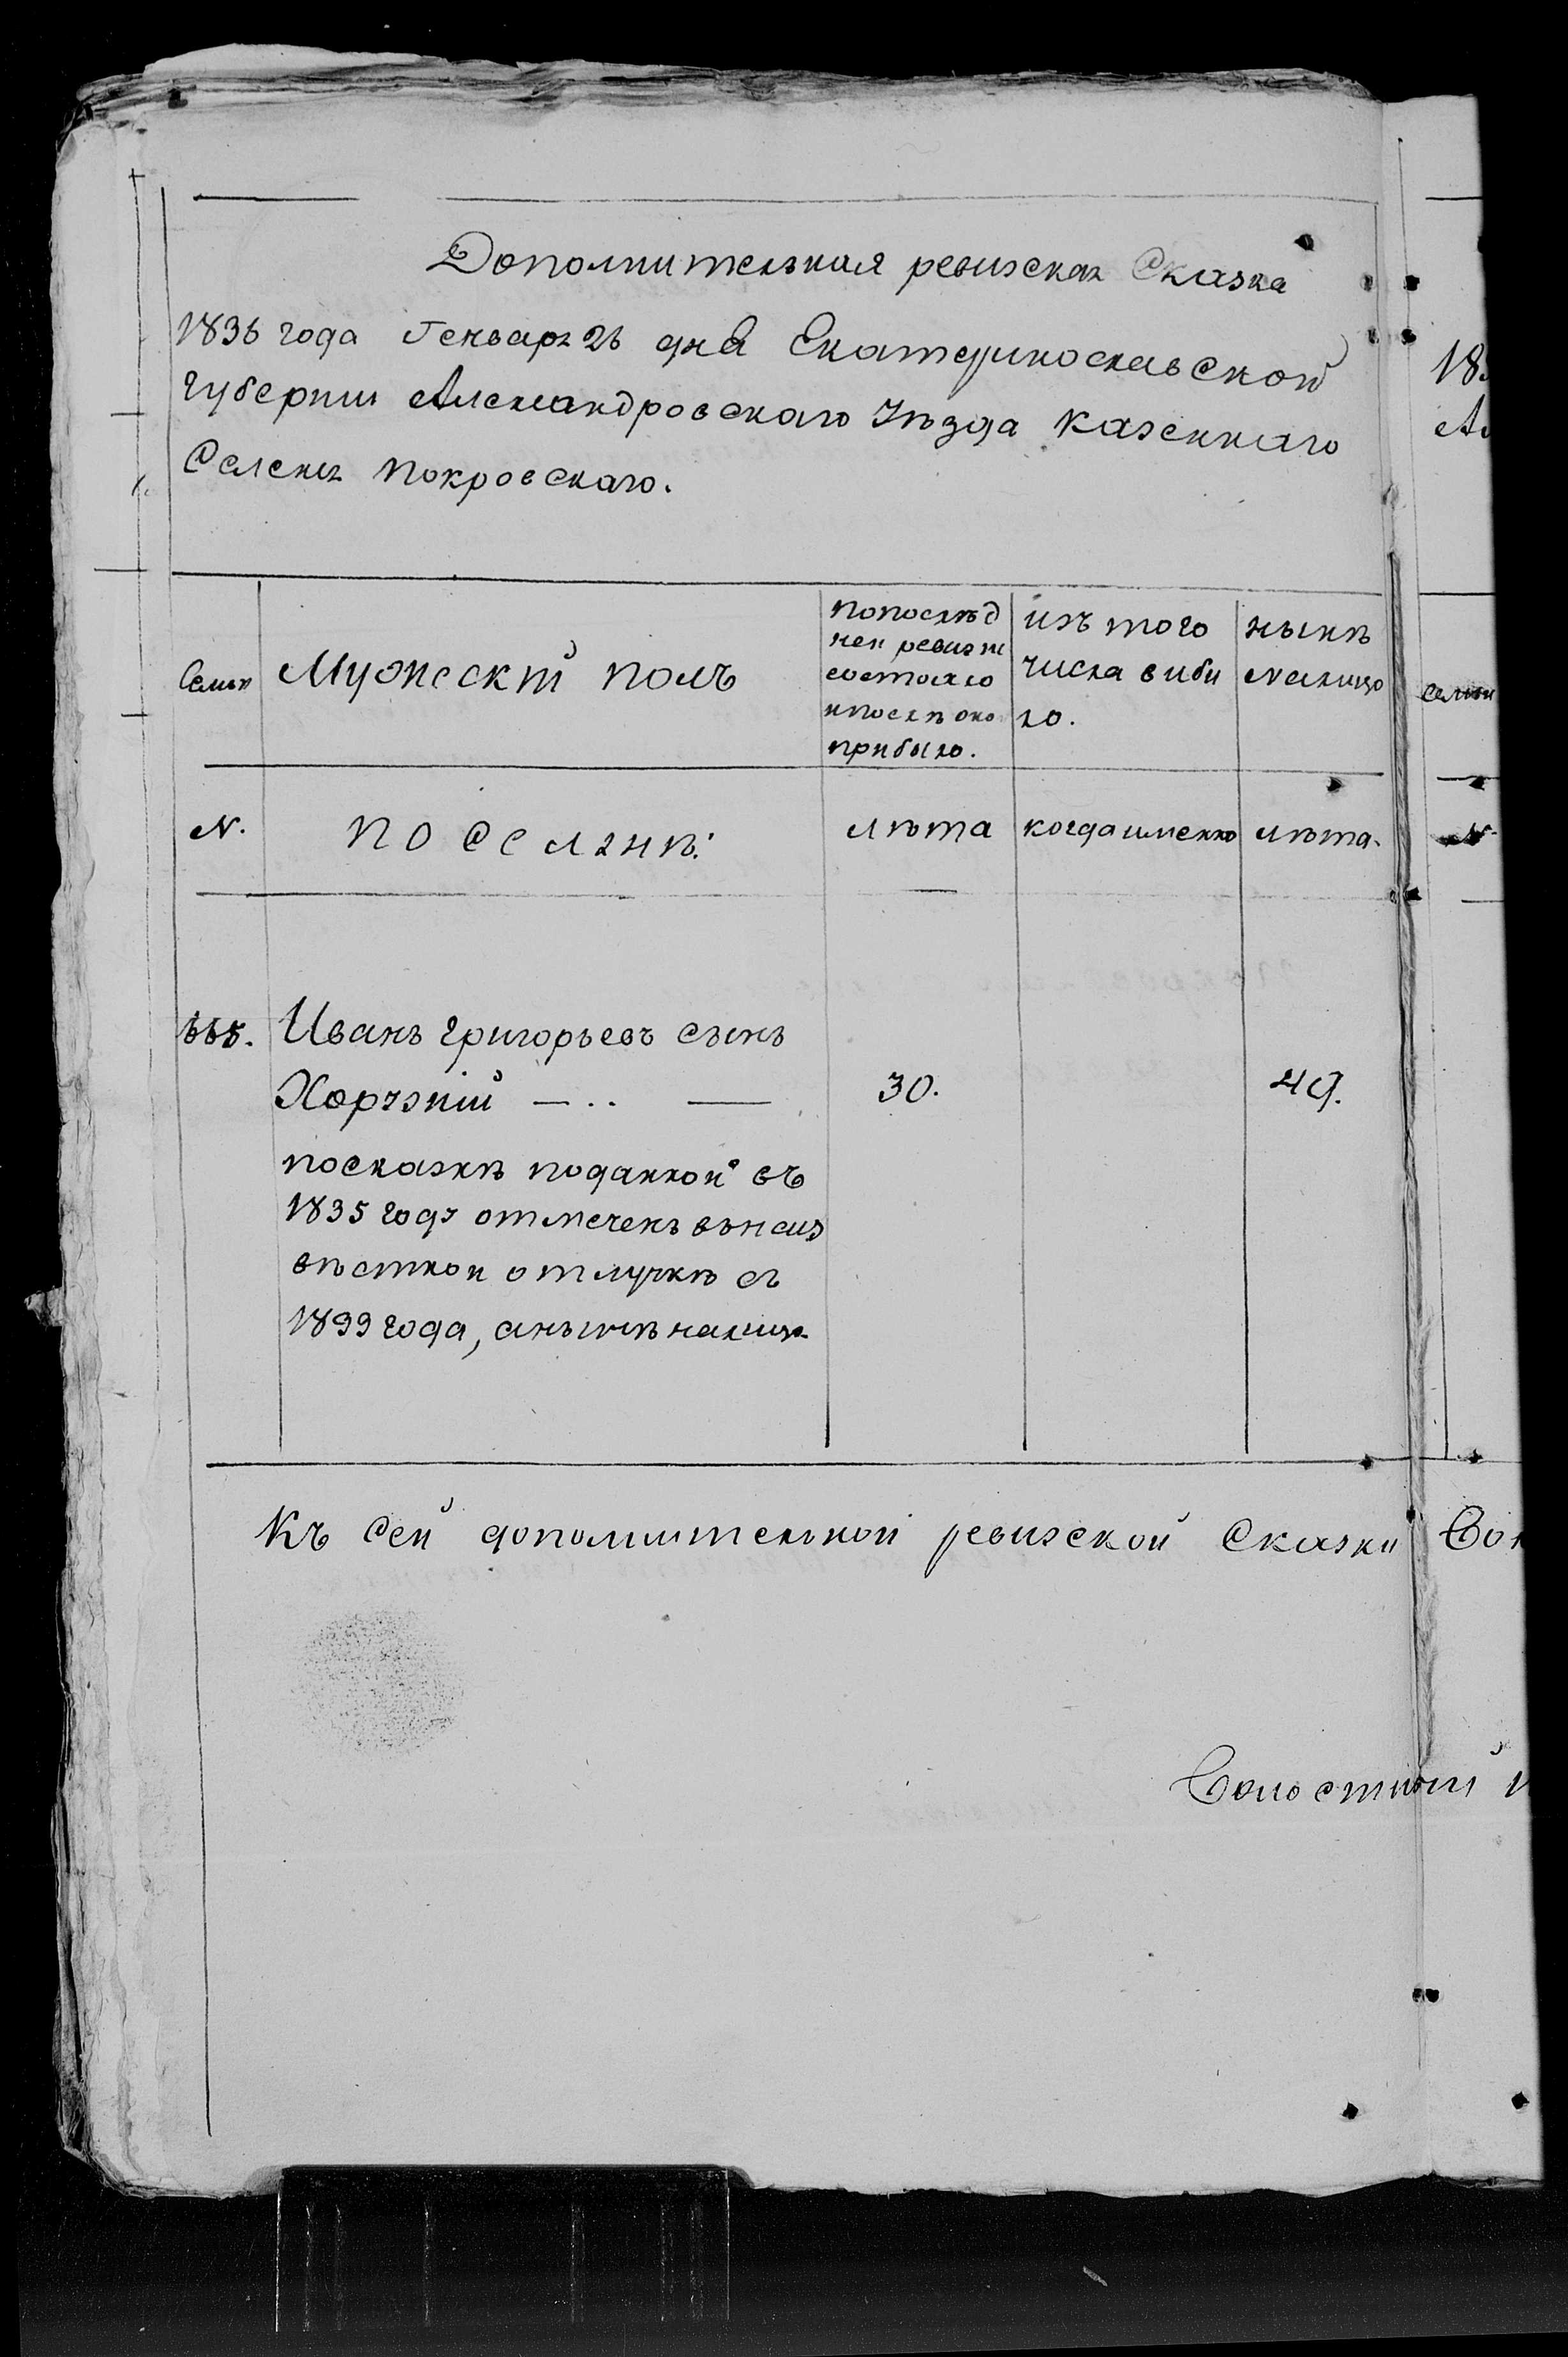 Дополнительная ревизская Сказка
1836 года Генваря 26 дня Екатеринославской
Губернии Александровскаго Уѣзда Казеннаго
Селения Покровскаго.
Семьи
Мужескій полъ
попослѣд
ней ревизии
состояло
и послѣ оно
прибыло.
изъ того
числа виби
ло.
нынѣ
налицо
N.
поселянѣ:
лѣта
когда именно
лѣта.
665.
Иванъ Григорьевъ сынъ
30.
49.
посказкѣ поданной въ
1835 году отмеченъ внеиз
вѣстной отлучкѣ съ
года, анынѣ налицо
Къ Сей дополнительной ревизской Сказки
Волостный
18
Ал
семьи
N